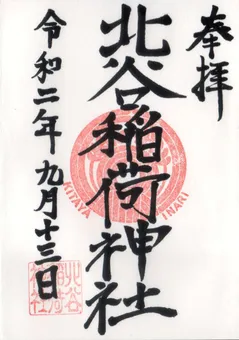 奉拝
北谷稲荷神社
KITAYA INARI
令和二年九月十三日
北谷
稲荷
神社